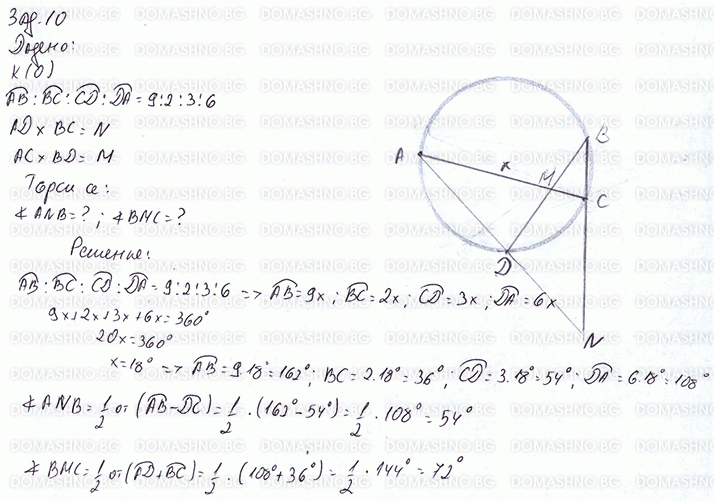 Зад. 10
Дадено:
K(O)
AB:BC:CD:DA=9:2:3:6
AD x BC = N
AC x BD = M
Торси се:
∢ANB=? ; ∢BMC=?
Решение:
AB:BC:CD:DA=9:2:3:6 => AB=9x ; BC=2x ; CD=3x ; DA=6x
9x+2x+3x+6x=360°
20x=360°
x=18° => AB=9.18°=162°; BC=2.18°=36°; CD=3.18°=54°; DA=6.18°=108°
∢ANB=1/2 от (AB-DC)=1/2.(162°-54°)=1/2.108°=54°
∢BMC=1/2 от (AD+BC)=1/2.(108°+36°)=1/2.144°=72°
A
B
x
M
C
D
N
DOMASHNO.BG